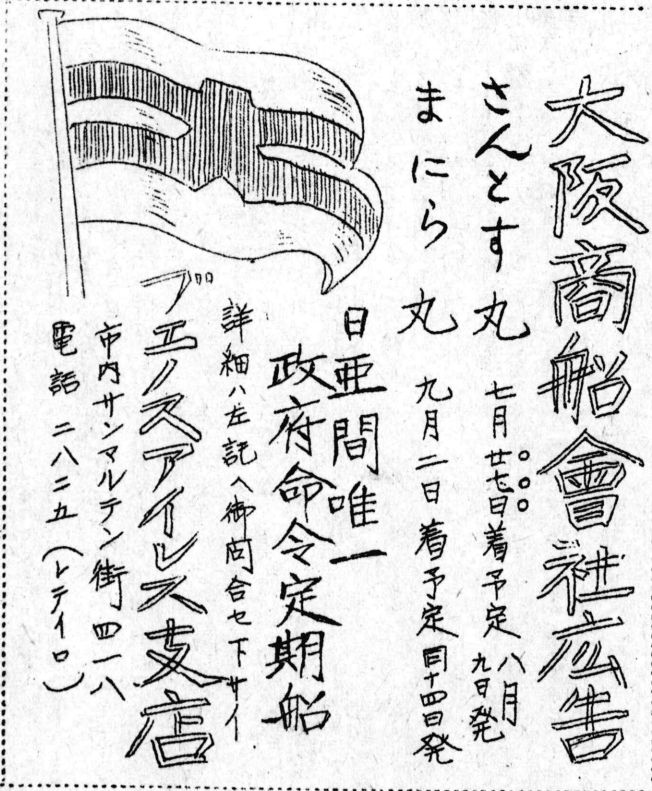 大阪商船會社広告
さんとす丸 七月廿七日着予定 八月九日発
まにら丸 九月二日着予定 同十四日発
日亜間唯一
政府命令定期船
詳細ハ左記ヘ御問合セ下サイ
ブエノスアイレス支店
市内サンマルテン街四一八
電話 二八二五(レテイロ)